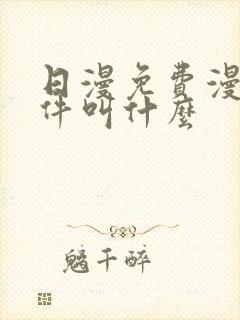 日漫免费漫
件叫什麼
魑千醉